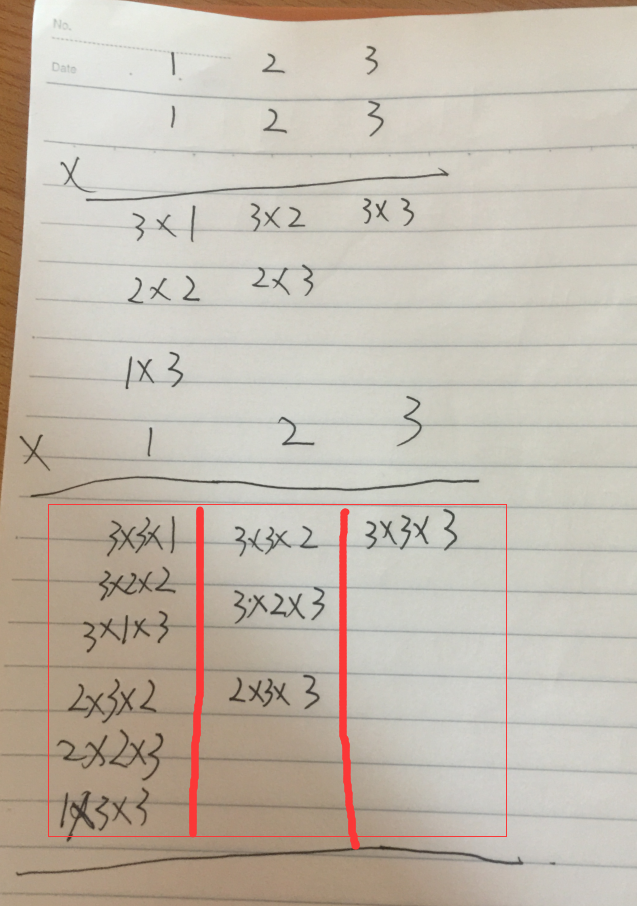 No.
Date 1 2 3
1 2 3
X
3×1 3×2 3×3
2×2 2×3
1×3
X 1 2 3
3×3×1 3×3×2 3×3×3
3×2×2
3×2×3
3×1×3
2×3×2 2×3×3
2×2×3
1×3×3